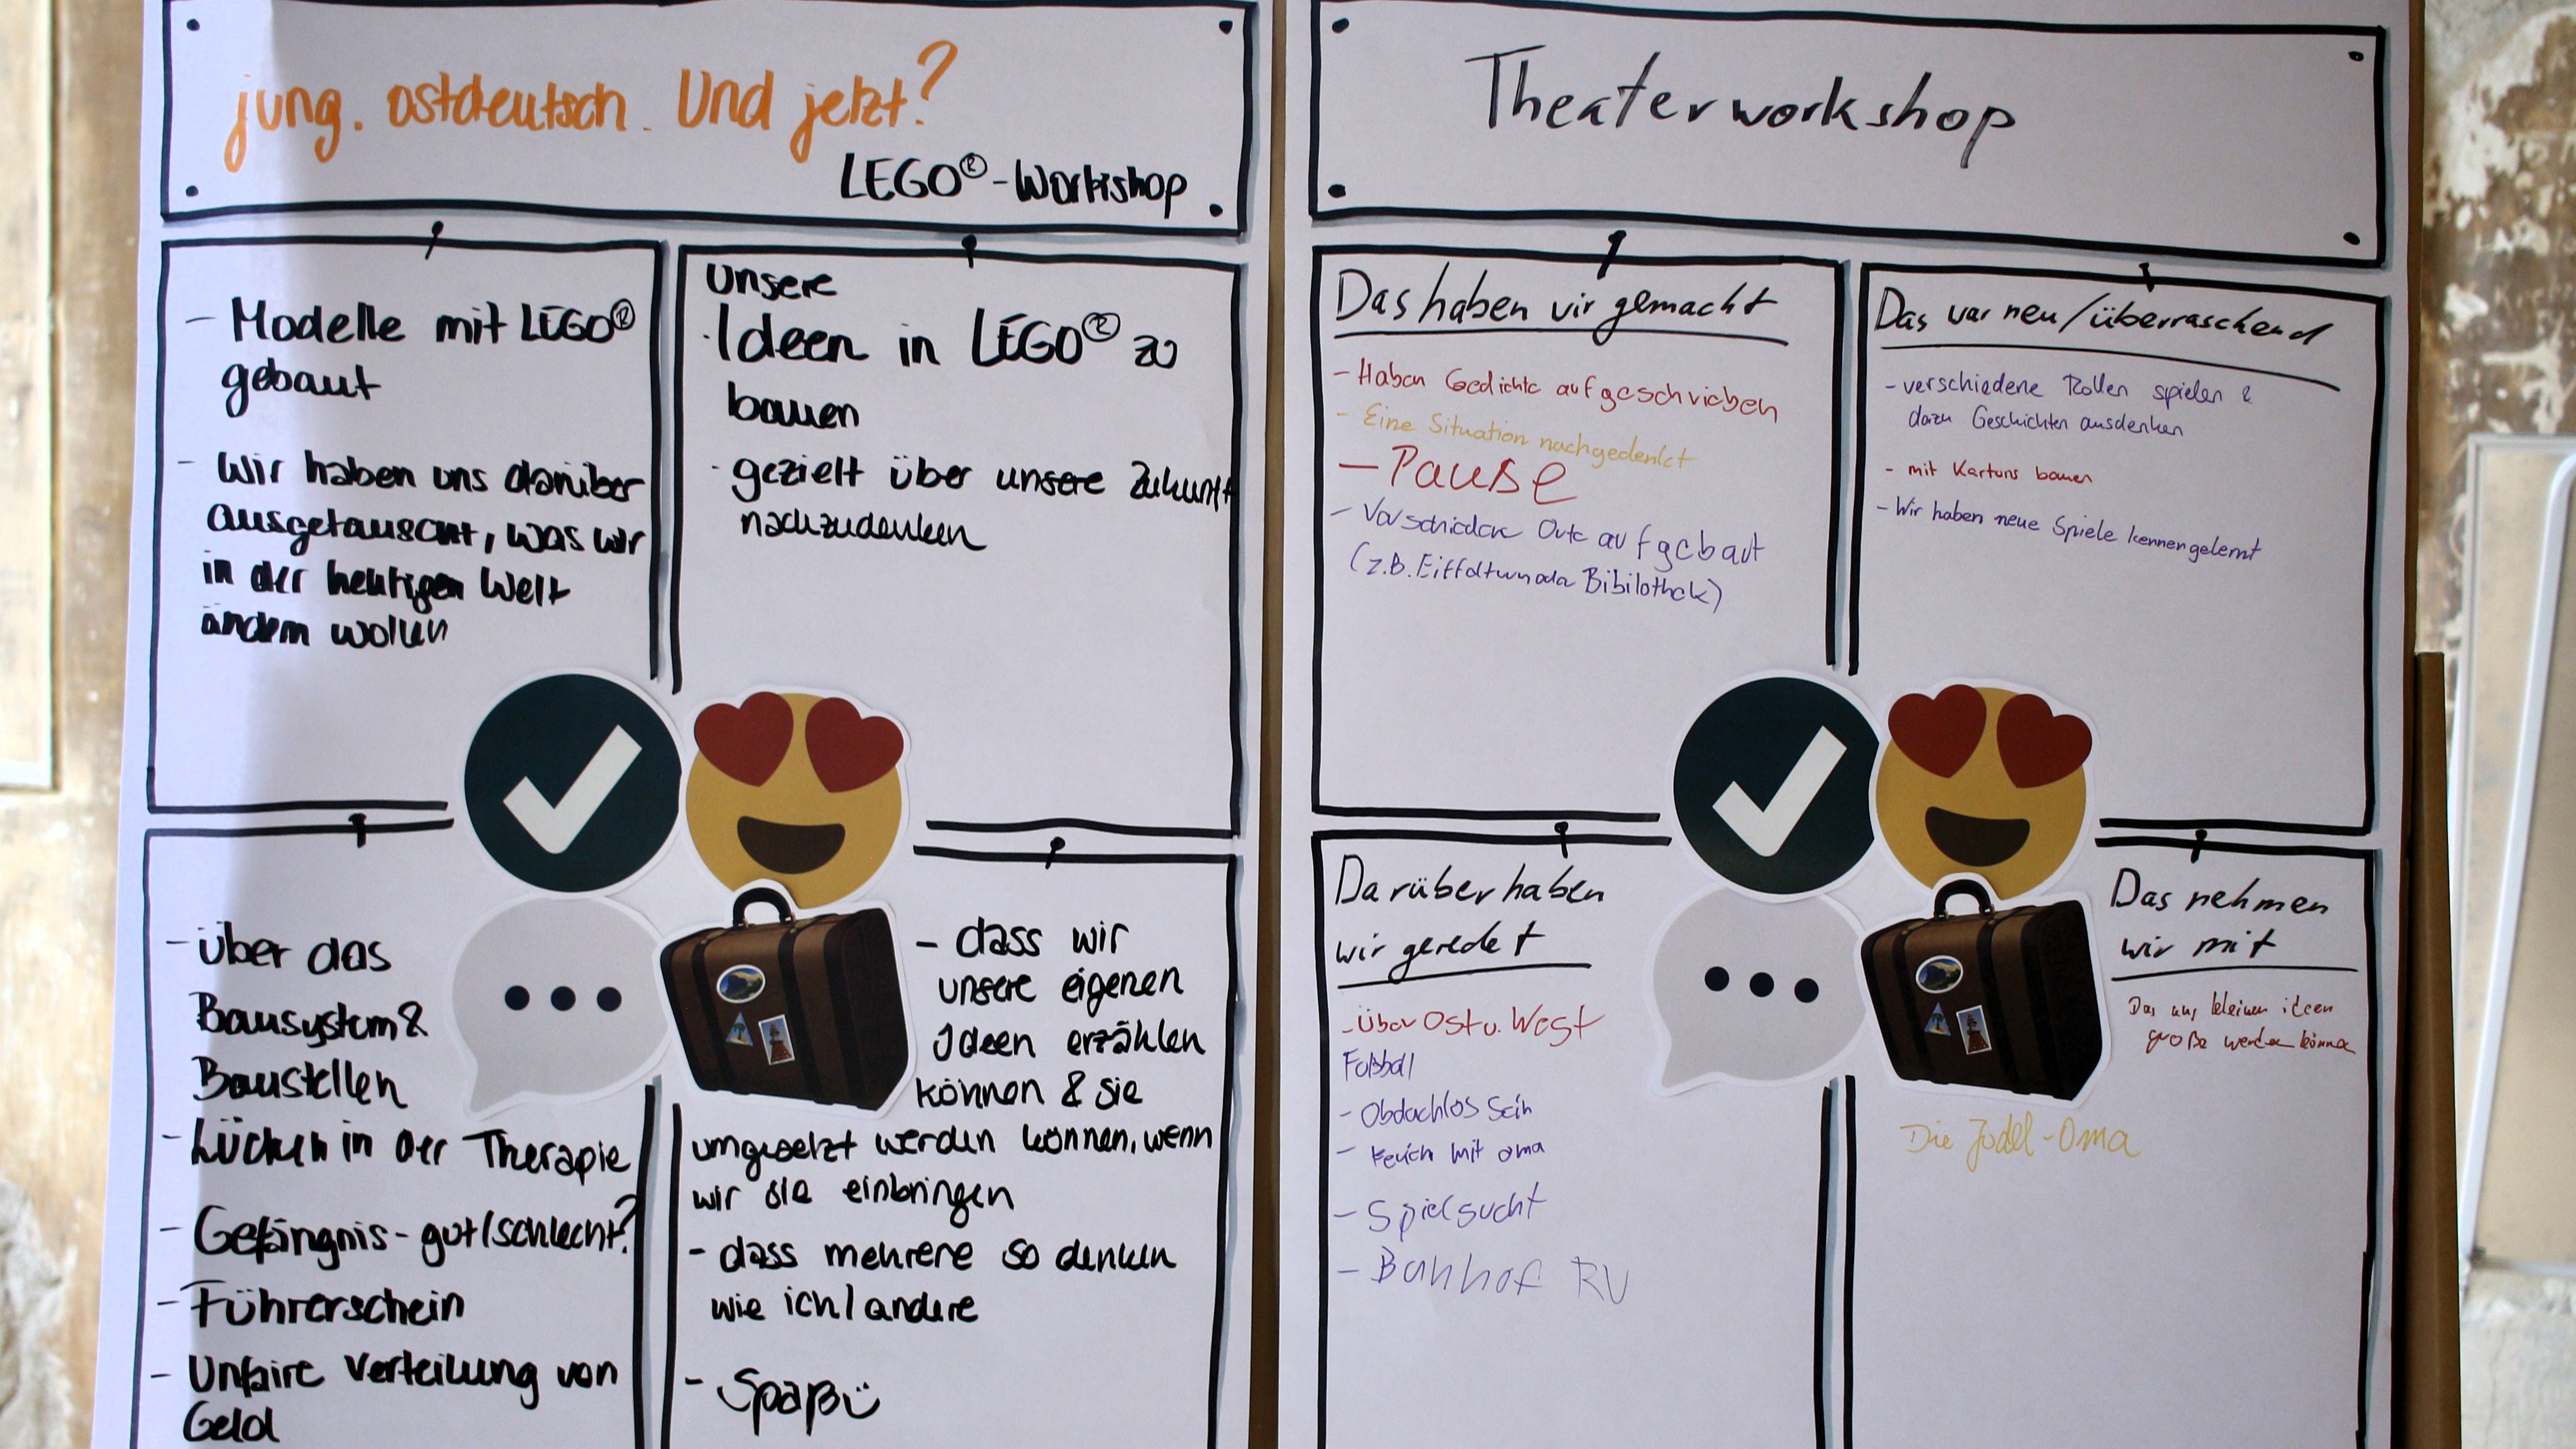 jung. ostdeutsch. Und jetzt?
LEGO®-Workshop
- Modelle mit LEGO®
gebaut
- Wir haben uns darüber
ausgetauscht, was wir
in der heutigen Welt
ändern wollen
Unsere
· Ideen in LEGO® zu
bauen
· gezielt über unsere Zukunft
nachzudenken
- Über das
Bausystem &
Baustellen
- Lücken in der Therapie
- Gefängnis - gut/schlecht?
- Führerschein
- Unfaire Verteilung von
Geld
- dass wir
unsere eigenen
Ideen erzählen
können & sie
umgesetzt werden können, wenn
wir sie einbringen
- dass mehrere so denken
wie ich/andere
- Spaß
Theaterworkshop
Das haben wir gemacht
- Haben Gedichte aufgeschrieben
- Eine Situation nachgedenkt
- Pauße
- Verschiedene Orte aufgebaut
(z.B. Bibilothek)
Das war neu/überraschend
- verschiedene Rollen spielen &
dazu Geschichten ausdenken
- mit Kartons bauen
- Wir haben neue Spiele kennengelernt
Darüber haben
wir geredet
- Über Ost u. West
Fußball
- Obdachlos sein
- mit oma
- Spielsucht
- Bahhof RV
Das nehmen
wir mit
Das aus kleinen ideen
große werden können
Die Jodel-Oma